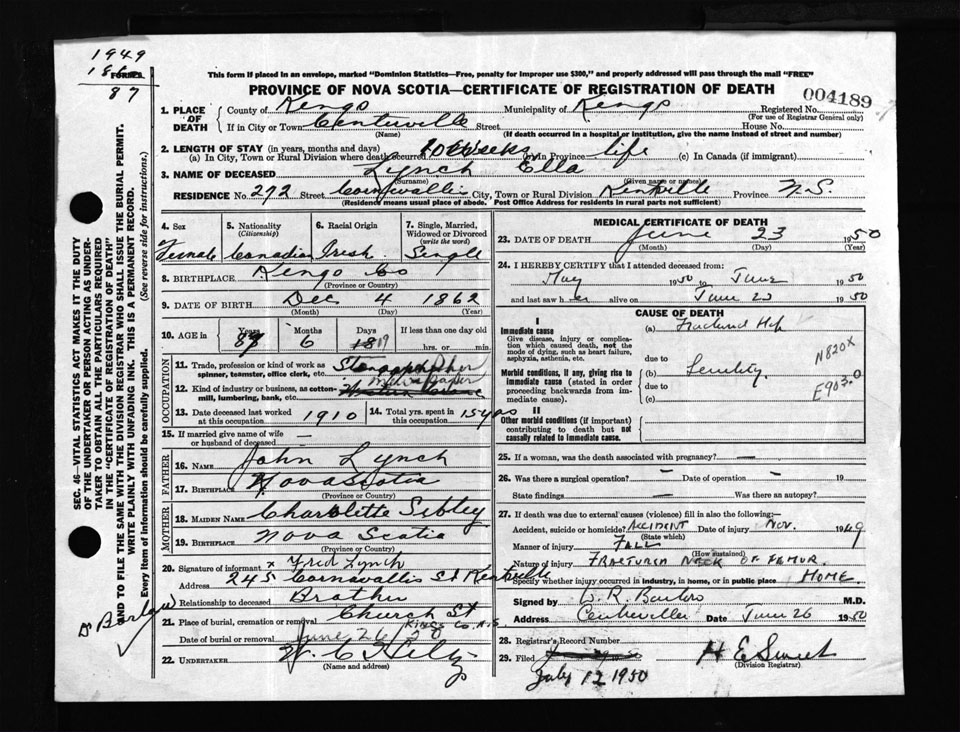 1949
186
FORMER
87
This form if placed in an envelope, marked "Dominion Statistics—Free, penalty for improper use $300," and properly addressed will pass through the mail "FREE"
PROVINCE OF NOVA SCOTIA—CERTIFICATE OF REGISTRATION OF DEATH
004189
1. PLACE OF DEATH County of Kings Municipality of Kings Registered No.
(For use of Registrar General only)
If in City or Town Centreville Street House No.
(Name) (If death occurred in a hospital or institution, give the name instead of street and number)
2. LENGTH OF STAY (in years, months and days)
(a) In City, Town or Rural Division where death occurred 10 weeks (b) in Province life (c) In Canada (if immigrant)
3. NAME OF DECEASED Lynch Ella
(Surname) (Given name or names)
RESIDENCE No. 272 Street Cornwallis City, Town or Rural Division Kentville Province N.S.
(Residents means usual place of abode. Post Office Address for residents in rural parts not sufficient)
4. Sex Female
5. Nationality (Citizenship) Canadian
6. Racial Origin Irish
7. Single, Married, Widowed or Divorced (write the word) Single
8. BIRTHPLACE Kings Co
(Province or Country)
9. DATE OF BIRTH Dec 4 1862
(Month) (Day) (Year)
10. AGE in Years 87 Months 6 Days 18 19 If less than one day hrs. or min.
OCCUPATION
11. Trade, profession or kind of work as spinner, teamster, office clerk, etc. Stenographer
12. Kind of industry or business, as cotton-mill, lumbering, bank, etc.
13. Date deceased last worked at this occupation 1910
14. Total yrs. spent in this occupation 15 yrs
15. If married give name of wife or husband of deceased —
FATHER
16. NAME John Lynch
17. BIRTHPLACE Nova Scotia
(Province or Country)
MOTHER
18. MAIDEN NAME Charlotte Sibley
19. BIRTHPLACE Nova Scotia
(Province or Country)
20. Signature of informant x Fred Lynch
Address 245 Cornwallis St Kentville
Relationship to deceased Brother
21. Place of burial, cremation or removal Church St
Kings Co. N.S
Date of burial or removal June 26/50
22. UNDERTAKER
(Name and address)
MEDICAL CERTIFICATE OF DEATH
23. DATE OF DEATH June 23 1950
(Month) (Day) (Year)
24. I HEREBY CERTIFY that I attended deceased from:
May 1950 to June 1950
and last saw her alive on June 23 1950
CAUSE OF DEATH
I
Immediate cause
Give disease, injury or complication which caused death, not the mode of dying, such as heart failure, asphyxia, asthenia, etc.
(a) Fractured Hip
due to
N820X
Morbid conditions, if any, giving rise to immediate cause (stated in order proceeding backwards from immediate cause).
(b) Senility.
due to
(c)
E903.0
II
Other morbid conditions (if important) contributing to death but not causally related to immediate cause.
25. If a woman, was the death associated with pregnancy? —
26. Was there a surgical operation? — Date of operation — 19
State findings Was there an autopsy?
27. If death was due to external causes (violence) fill in also the following:—
Accident, suicide or homicide? ACCIDENT Date of injury NOV. 1949
(State which)
Manner of injury FALL
(How sustained)
Nature of injury FRACTURED NECK OF FEMUR.
Specify whether injury occurred in industry, in home, or in public place HOME.
Signed by M.D.
Address Centreville Date June 26 1950
28. Registrar's Record Number
29. Filed July 12 1950 H E Sweet
(Division Registrar)
SEC. 46—VITAL STATISTICS ACT MAKES IT THE DUTY OF THE UNDERTAKER OR PERSON ACTING AS UNDERTAKER TO OBTAIN ALL THE PARTICULARS REQUIRED IN THE "CERTIFICATE OF REGISTRATION OF DEATH" AND TO FILE THE SAME WITH THE DIVISION REGISTRAR WHO SHALL ISSUE THE BURIAL PERMIT.
WRITE PLAINLY WITH UNFADING INK. THIS IS A PERMANENT RECORD.
Every item of information should be carefully supplied. (See reverse side for instructions.)